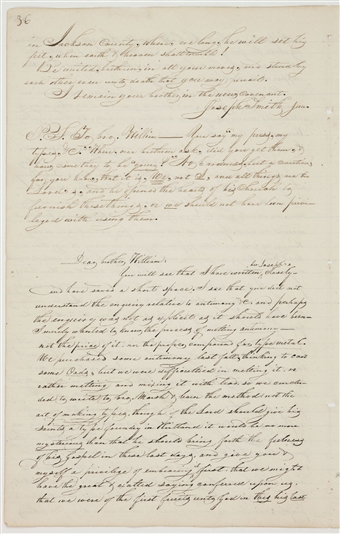 36
in Jackson County, where we
feet, when earth & heaven shall
Be united, brethren, in all your moves, and stand by
each other even unto death that you may prevail.
I remain your brother in the new covenant.
Joseph Smith, Jun.
P.S. To, bro, William — You say "my press, my
types, &c." Where, our brethren ask, did you get them, &
how came they to be "yours"? No hardness, but a caution,
for you know, that it is, We, not I, and all things are the
Lord's, and he opened the hearts of his Church to
furnish these things, or we should not have been privi-
leged with using them.
Dear brother, William
bro Joseph
You will see that I have written, closely
and have saved a short space, I see that you did not
understand the enquiry relative to antimony &c. and perhaps
the enquiry was not as explicit as it should have been
I merely wanted to know, the process, of melting antimony —
not the price of it, or the proper composition for type metal.
We purchased some antimony last fall, thinking to cast
some , but we were in melting it, or
rather melting and mixing it with lead so we conclu-
ded, to write, to, bro, Marsh & learn the method, not the
art of making types, though if the Lord should give his
saints, a type foundry in the land it would be no more
mysterious than that he should bring forth the fulness
of his Gospel in these last days, and give you &
myself a privilege of embracing first, that we might
have the great & exalted saying conferred upon us,
that we were of the first fruits unto God in this his last